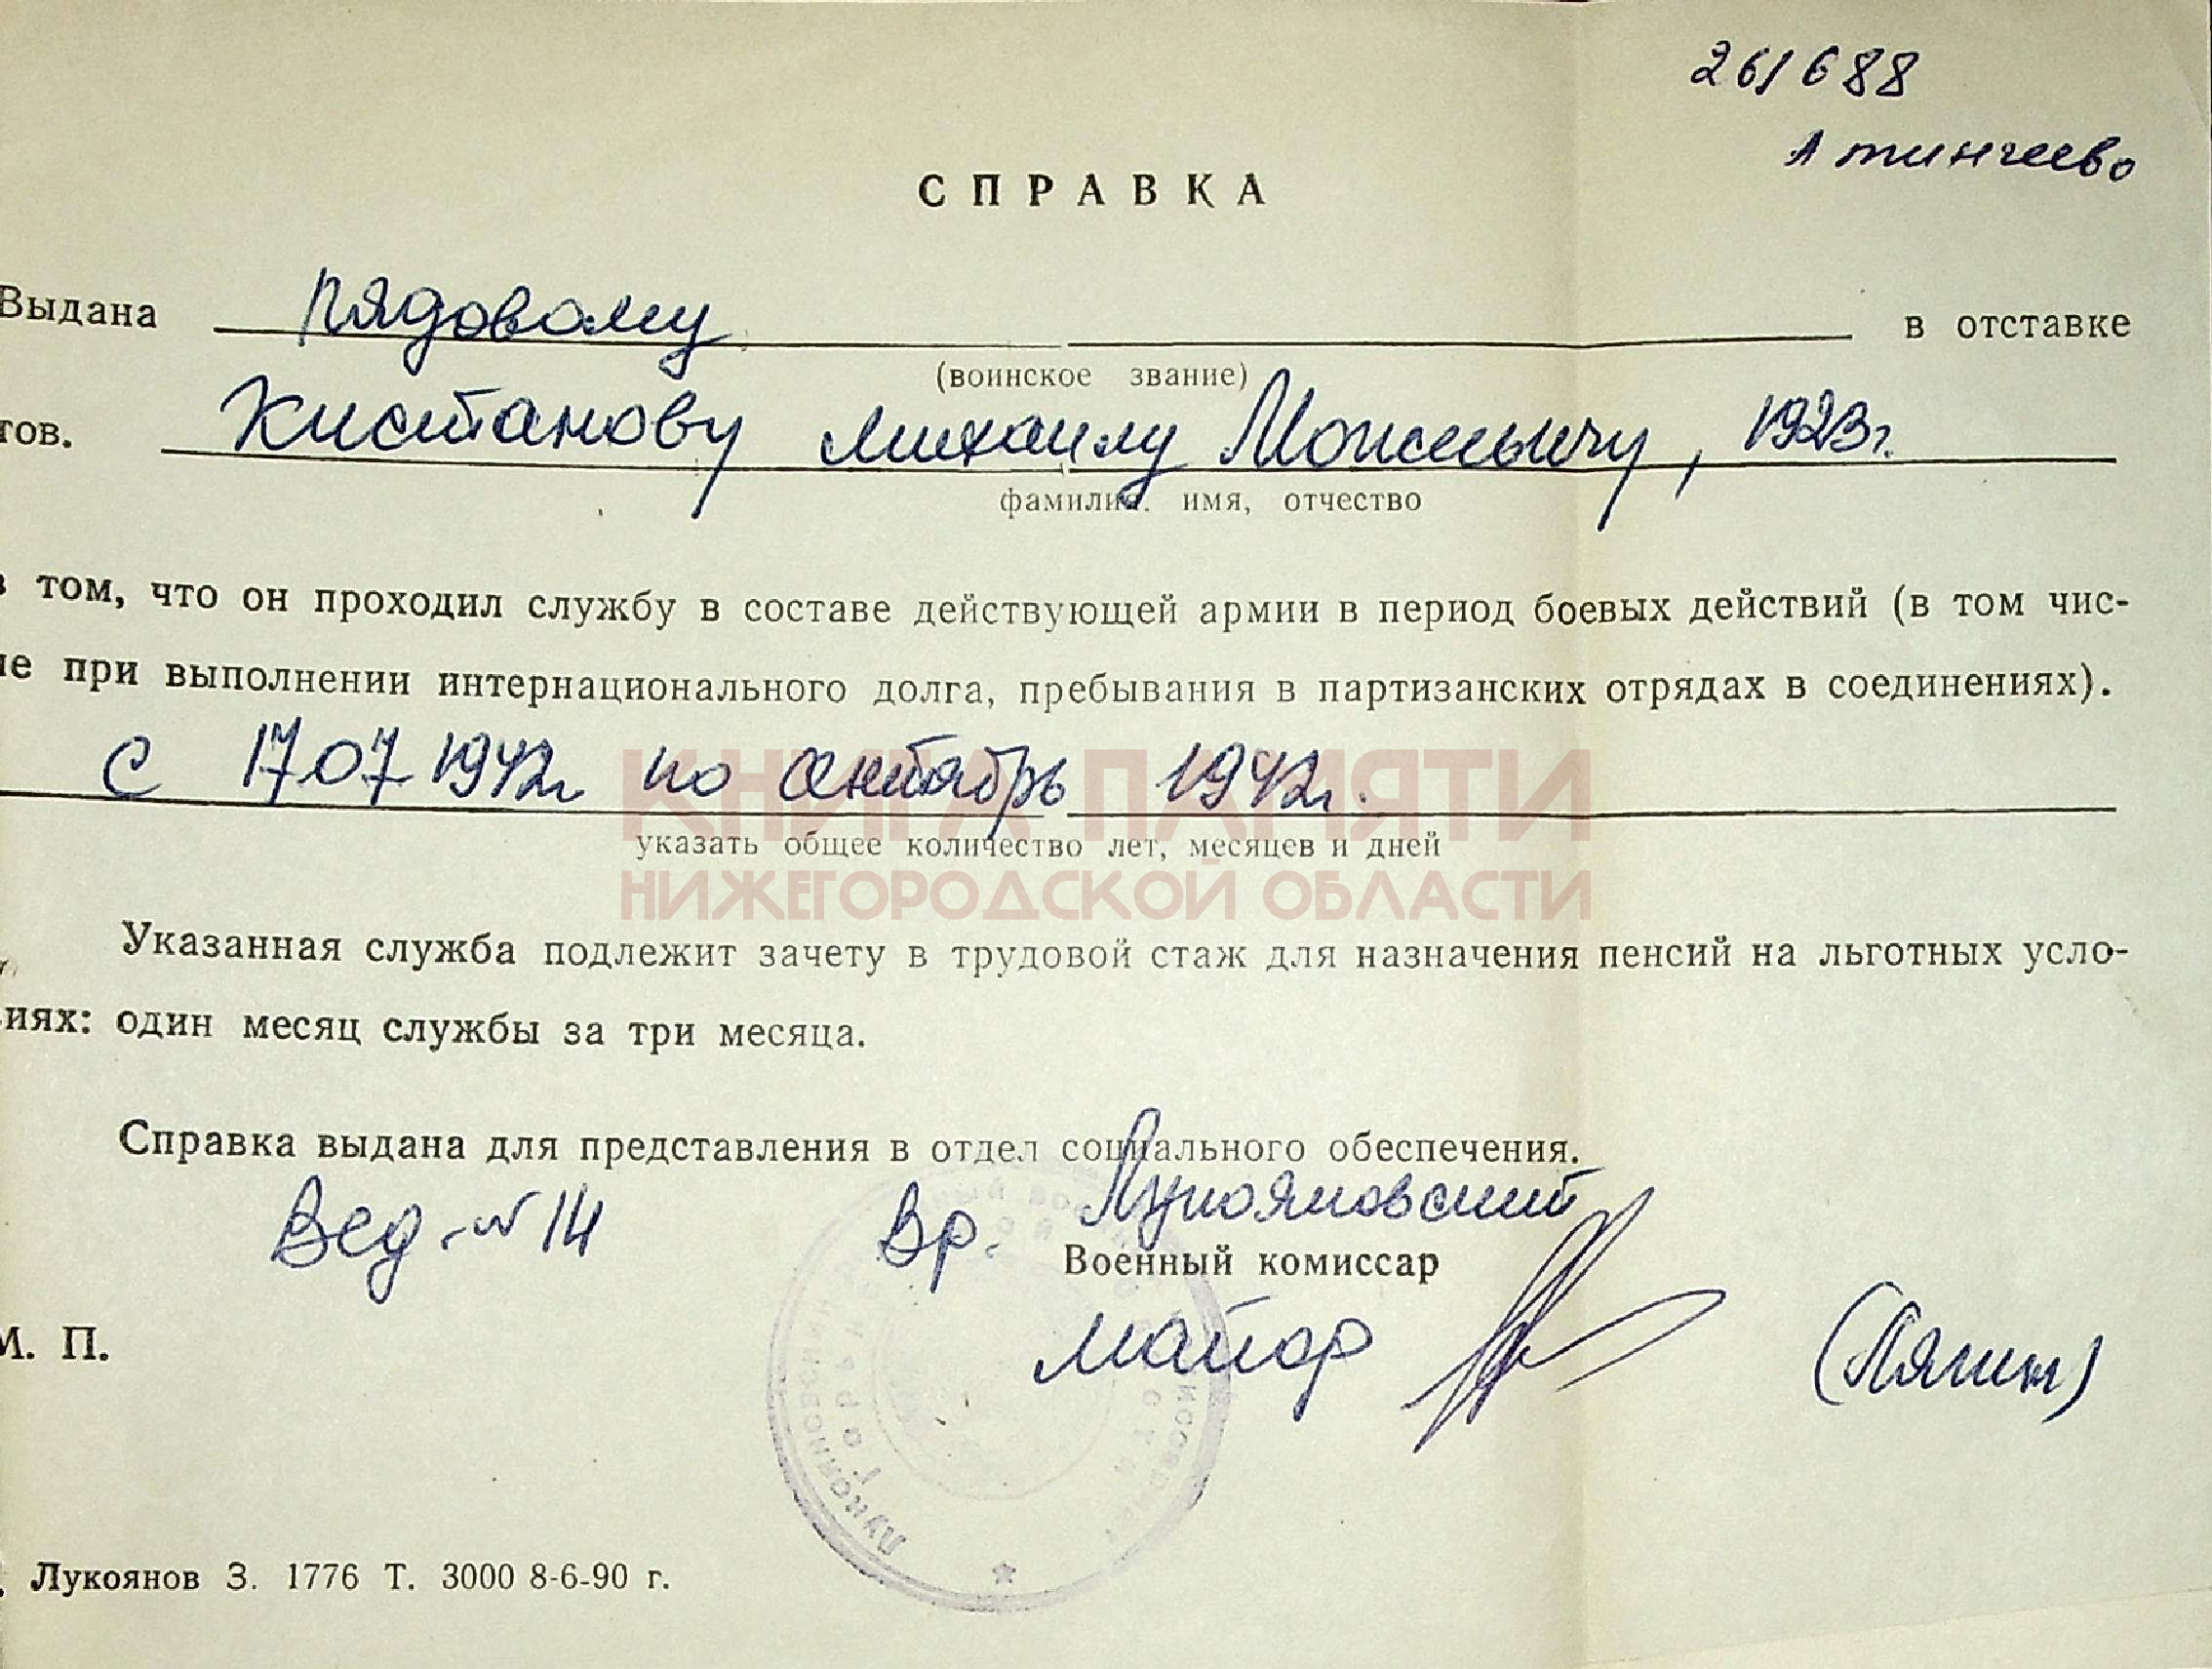 26/688
Атингеево
СПРАВКА
Выдана рядовому в отставке
(воинское звание)
тов. Кистанову Михаилу Моисеевичу, 1923г.
фамилия. имя, отчество
в том, что он проходил службу в составе действующей армии в период боевых действий (в том чис-
ле при выполнении интернационального долга, пребывания в партизанских отрядах в соединениях).
с 17 07 1942г по сентябрь 1942г.
КНИГА ПАМЯТИ
указать общее количество лет, месяцев и дней
НИЖЕГОРОДСКОЙ ОБЛАСТИ
Указанная служба подлежит зачету в трудовой стаж для назначения пенсий на льготных усло-
виях: один месяц службы за три месяца.
Справка выдана для представления в отдел социального обеспечения.
Вед. №14 Вр. Лукояновский
Военный комиссар
М. П. майор (Лягин)
Лукоянов З. 1776 Т. 3000 8-6-90 г.